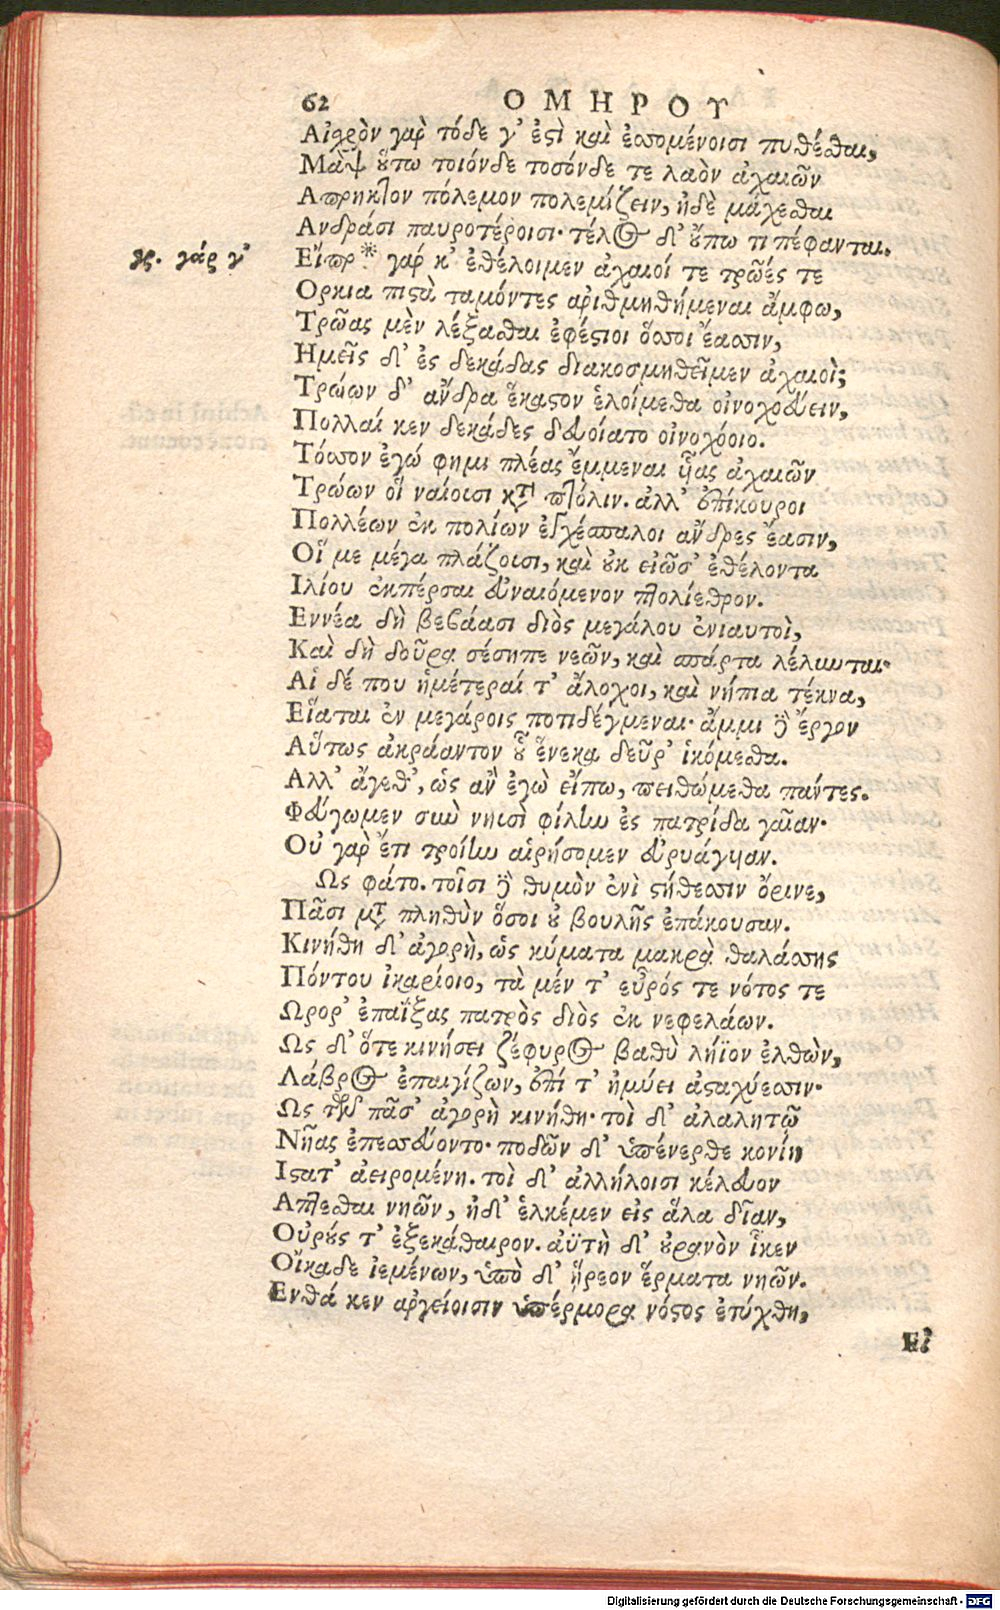 62 ΟΜΗΡΟΥ
Αἰχρὸν γαρ τόδε γ' ἐςὶ καὶ ἐσομένοισι πυθέθαι,
Μὰψ ὅτω τοιόνδε τοσόνδε τε λαὸν ἀχαιῶν
Απρηκτον πόλεμον πολεμίζειν, ἠδὲ μάχεθαι
Ανδράσι παυροτέροισι· τέλος δ' ὅπω τι πέφανται.
γρ. γάρ γ'
Εἴπρ * γάρ κ' ἐθέλοιμεν ἀχαιοί τε τρῶές τε
Ορκια πιςὰ ταμόντες ἀριθμηθήμεναι ἄμφω,
Τρῶας μὲν λέξαθαι ἐφέςιοι ὅσσοι ἔασσιν,
Ημεῖς δ' ἐς δεκάδας διακοσμηθεῖμεν ἀχαιοὶ;
Τρώων δ' ἄνδρα ἕκαςον ἑλοίμεθα οἰνοχοεύειν,
Πολλαί κεν δεκάδες δευοίατο οἰνοχόοιο.
Τόσσον ἐγώ φημι πλέας ἔμμεναι ἧας ἀχαιῶν
Τρώων οἳ ναίοισι κατὰ πτόλιν. ἀλλ' ἐπίκουροι
Πολλέων ἐκ πολίων ἐγχέσπαλοι ἄνδρες ἔασιν,
Οἵ με μέγα πλάζοισι, καὶ οὐκ εἰῶσ' ἐθέλοντα
Ιλίου ἐκπέρσαι εὐναιόμενον πτολίεθρον.
Εννέα δὴ βεβάασι διὸς μεγάλου ἐνιαυτοὶ,
Καὶ δὴ δοῦρα σέσηπε νεῶν, καὶ σπάρτα λέλυνται·
Αἱ δέ που ἡμέτεραί τ' ἄλοχοι, καὶ νήπια τέκνα,
Εἵαται ἐν μεγάροις ποτιδέγμεναι· ἄμμι δὲ ἔργον
Αὕτως ἀκράαντον οὗ ἕνεκα δεῦρ' ἱκόμεθα.
Αλλ' ἄγεθ', ὡς ἂν ἐγὼ εἴπω, πειθώμεθα πάντες.
Φεύγωμεν σιυὺ νηισὶ φίλην ἐς πατρίδα γαῖαν·
Οὐ γαρ ἔτι τροίην αἱρήσομεν εὐρυάγυιαν.
Ως φάτο. τοῖσι δὲ θυμὸν ἐνὶ ςήθεσσιν ὄρινε,
Πᾶσι μετὰ πληθὺν ὅσοι οὐ βουλῆς ἐπάκουσαν.
Κινήθη δ' ἀγορὴ, ὡς κύματα μακρὰ θαλάσσης
Πόντου ἰκαρίοιο, τὰ μέν τ' εὖρός τε νότος τε
Ωρορ' ἐπαΐξας πατρὸς διὸς ἐκ νεφελάων.
Ως δ' ὅτε κινήσει ζέφυρος βαθὺ λήϊον ἐλθὼν,
Λάβρος ἐπαιγίζων, ἐπί τ' ἠμύει ἀςαχύεσσιν·
Ως τῶν πᾶσ' ἀγορὴ κινήθη· τοὶ δ' ἀλαλητῷ
Νῆας ἐπεσσεύοντο· ποδῶν δ' ὑπένερθε κονίη
Ιςατ' ἀειρομένη. τοὶ δ' ἀλλήλοισι κέλευον
Απτεθαι νηῶν, ἠδ' ἑλκέμεν εἰς ἅλα δῖαν,
Οὐρούς τ' ἐξεκάθαιρον. ἀϋτὴ δ' οὐρανὸν ἷκεν
Οἴκαδε ἱεμένων, ὑπὸ δ' ᾕρεον ἕρματα νηῶν.
Ενθά κεν ἀργείοισιν ὑπέρμορα νόςος ἐτύχθη,
Εἰ
Digitalisierung gefördert durch die Deutsche Forschungsgemeinschaft - DFG